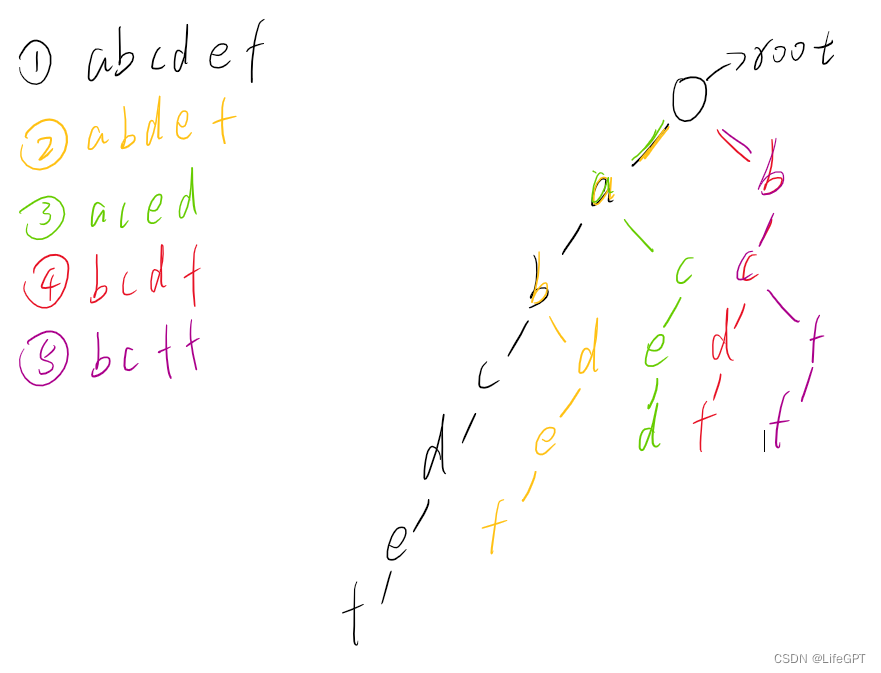 ① abcdef
② abdef
③ aced
④ bcdf
⑤ bcff
root
a b
b c c
c d e d f
d e d f f
e f
f
CSDN @LifeGPT